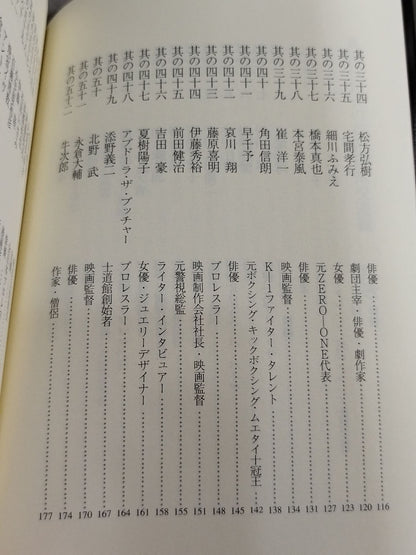 其の三十四 松方弘樹 俳優 116
其の三十五 宅間孝行 劇団主宰・俳優・劇作家 120
其の三十六 細川ふみえ 女優 123
其の三十七 橋本真也 元ZERO―ONE代表 127
其の三十八 本宮泰風 俳優 131
其の三十九 崔 洋一 映画監督 134
其の四十 角田信朗 K―1ファイター・タレント 138
其の四十一 早千予 元ボクシング・キックボクシング・ムエタイ十冠王 142
其の四十二 哀川 翔 俳優 145
其の四十三 藤原喜明 プロレスラー 148
其の四十四 伊藤秀裕 映画制作会社社長・映画監督 151
其の四十五 前田健治 元警視総監 155
其の四十六 吉田 豪 ライター・インタビュアー 158
其の四十七 夏樹陽子 女優・ジュエリーデザイナー 161
其の四十八 アブドーラ・ザ・ブッチャー プロレスラー 164
其の四十九 添野義二 士道館創始者 167
其の五十 北野 武 映画監督 170
其の五十一 永倉大輔 俳優 174
其の五十二 牛次郎 作家・僧侶 177